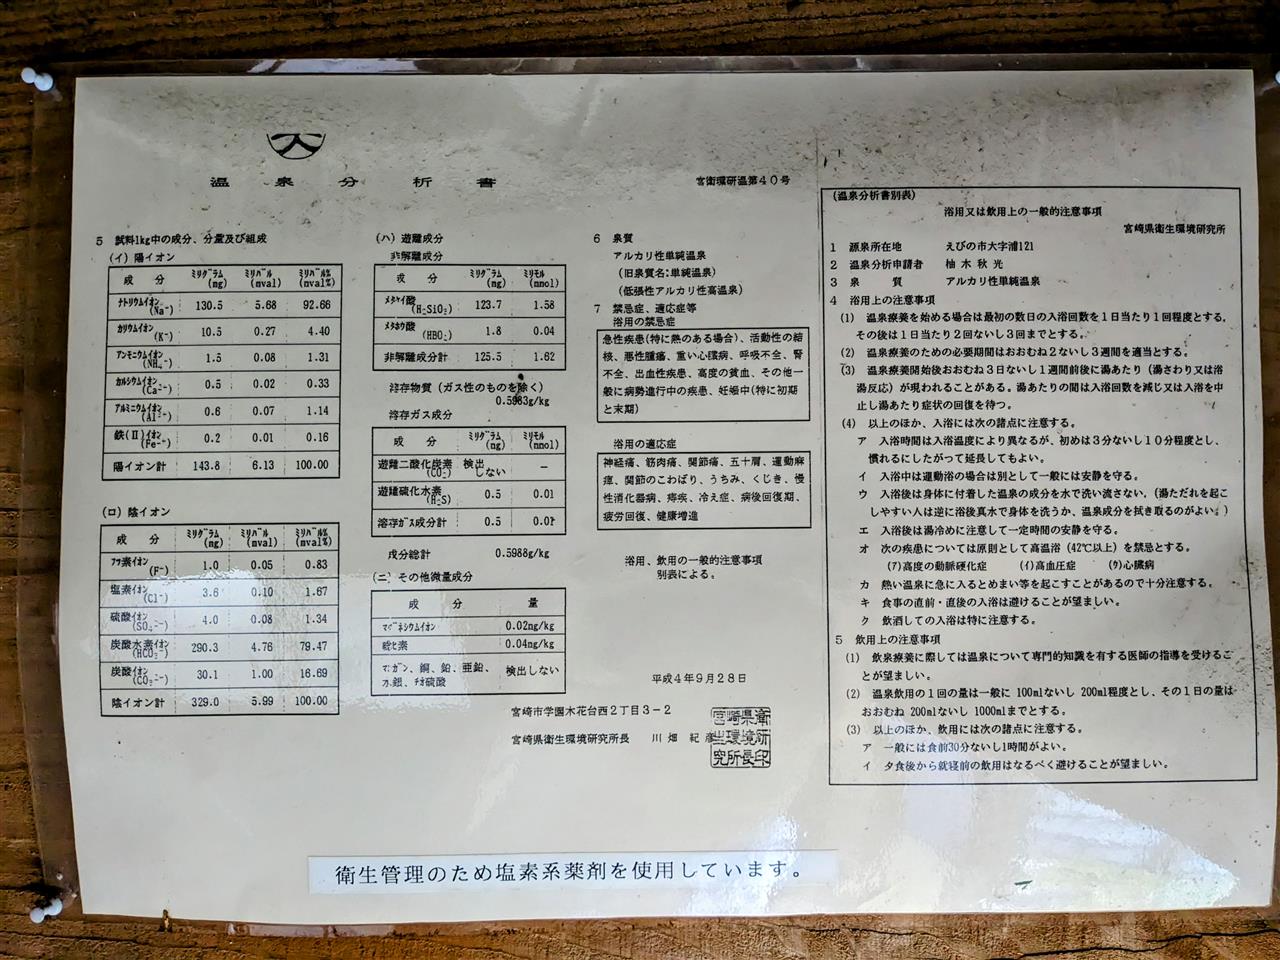 温泉分析書
宮衛環研温第40号
5 試料1kg中の成分、分量及び組成
(イ) 陽イオン
成 分 ミリグラム(mg) ミリバル(mval) ミリバル%(mval%)
ナトリウムイオン(Na⁺) 130.5 5.68 92.66
カリウムイオン(K⁺) 10.5 0.27 4.40
アンモニウムイオン(NH₄⁺) 1.5 0.08 1.31
カルシウムイオン(Ca⁺⁺) 0.5 0.02 0.33
アルミニウムイオン(Al³⁺) 0.6 0.07 1.14
鉄(Ⅱ)イオン(Fe⁺⁺) 0.2 0.01 0.16
陽イオン計 143.8 6.13 100.00
(ロ) 陰イオン
成 分 ミリグラム(mg) ミリバル(mval) ミリバル%(mval%)
フッ素イオン(F⁻) 1.0 0.05 0.83
塩素イオン(Cl⁻) 3.6 0.10 1.67
硫酸イオン(SO₄⁻⁻) 4.0 0.08 1.34
炭酸水素イオン(HCO₃⁻) 290.3 4.76 79.47
炭酸イオン(CO₃⁻⁻) 30.1 1.00 16.69
陰イオン計 329.0 5.99 100.00
(ハ) 遊離成分
非解離成分
成 分 ミリグラム(mg) ミリモル(mmol)
メタケイ酸(H₂SiO₃) 123.7 1.58
メタホウ酸(HBO₂) 1.8 0.04
非解離成分計 125.5 1.62
溶存物質(ガス性のものを除く)
0.5983g/kg
溶存ガス成分
成 分 ミリグラム(mg) ミリモル(mmol)
遊離二酸化炭素(CO₂) 検出しない −
遊離硫化水素(H₂S) 0.5 0.01
溶存ガス成分計 0.5 0.01
成分総計 0.5988g/kg
(ニ) その他微量成分
成 分 量
マグネシウムイオン 0.02mg/kg
総ヒ素 0.04mg/kg
マンガン、銅、鉛、亜鉛、水銀、チオ硫酸 検出しない
6 泉質
アルカリ性単純温泉
(旧泉質名:単純温泉)
(低張性アルカリ性高温泉)
7 禁忌症、適応症等
浴用の禁忌症
急性疾患(特に熱のある場合)、活動性の結
核、悪性腫瘍、重い心臓病、呼吸不全、腎
不全、出血性疾患、高度の貧血、その他一
般に病勢進行中の疾患、妊娠中(特に初期
と末期)
浴用の適応症
神経痛、筋肉痛、関節痛、五十肩、運動麻
痺、関節のこわばり、うちみ、くじき、慢
性消化器病、痔疾、冷え症、病後回復期、
疲労回復、健康増進
浴用、飲用の一般的注意事項
別表による。
平成4年9月28日
宮崎市学園木花台西2丁目3−2
宮崎県衛生環境研究所長 川畑 紀彦
宮崎県衛
生環境研
究所長印
(温泉分析書別表)
浴用又は飲用上の一般的注意事項
宮崎県衛生環境研究所
1 源泉所在地 えびの市大字浦121
2 温泉分析申請者 柚木秋光
3 泉 質 アルカリ性単純温泉
4 浴用上の注意事項
(1) 温泉療養を始める場合は最初の数日の入浴回数を1日当たり1回程度とする。
その後は1日当たり2回ないし3回までとする。
(2) 温泉療養のための必要期間はおおむね2ないし3週間を適当とする。
(3) 温泉療養開始後おおむね3日ないし1週間前後に湯あたり(湯さわり又は浴
湯反応)が現われることがある。湯あたりの間は入浴回数を減じ又は入浴を中
止し湯あたり症状の回復を待つ。
(4) 以上のほか、入浴には次の諸点に注意する。
ア 入浴時間は入浴温度により異なるが、初めは3分ないし10分程度とし、
慣れるにしたがって延長してもよい。
イ 入浴中は運動浴の場合は別として一般には安静を守る。
ウ 入浴後は身体に付着した温泉の成分を水で洗い流さない。(湯ただれを起こ
しやすい人は逆に浴後真水で身体を洗うか、温泉成分を拭き取るのがよい。)
エ 入浴後は湯冷めに注意して一定時間の安静を守る。
オ 次の疾患については原則として高温浴(42℃以上)を禁忌とする。
(ア)高度の動脈硬化症 (イ)高血圧症 (ウ)心臓病
カ 熱い温泉に急に入るとめまい等を起こすことがあるので十分注意する。
キ 食事の直前・直後の入浴は避けることが望ましい。
ク 飲酒しての入浴は特に注意する。
5 飲用上の注意事項
(1) 飲泉療養に際しては温泉について専門的知識を有する医師の指導を受けるこ
とが望ましい。
(2) 温泉飲用の1回の量は一般に 100mlないし 200ml程度とし、その1日の量は
おおむね 200mlないし 1000mlまでとする。
(3) 以上のほか、飲用には次の諸点に注意する。
ア 一般には食前30分ないし1時間がよい。
イ 夕食後から就寝前の飲用はなるべく避けることが望ましい。
衛生管理のため塩素系薬剤を使用しています。